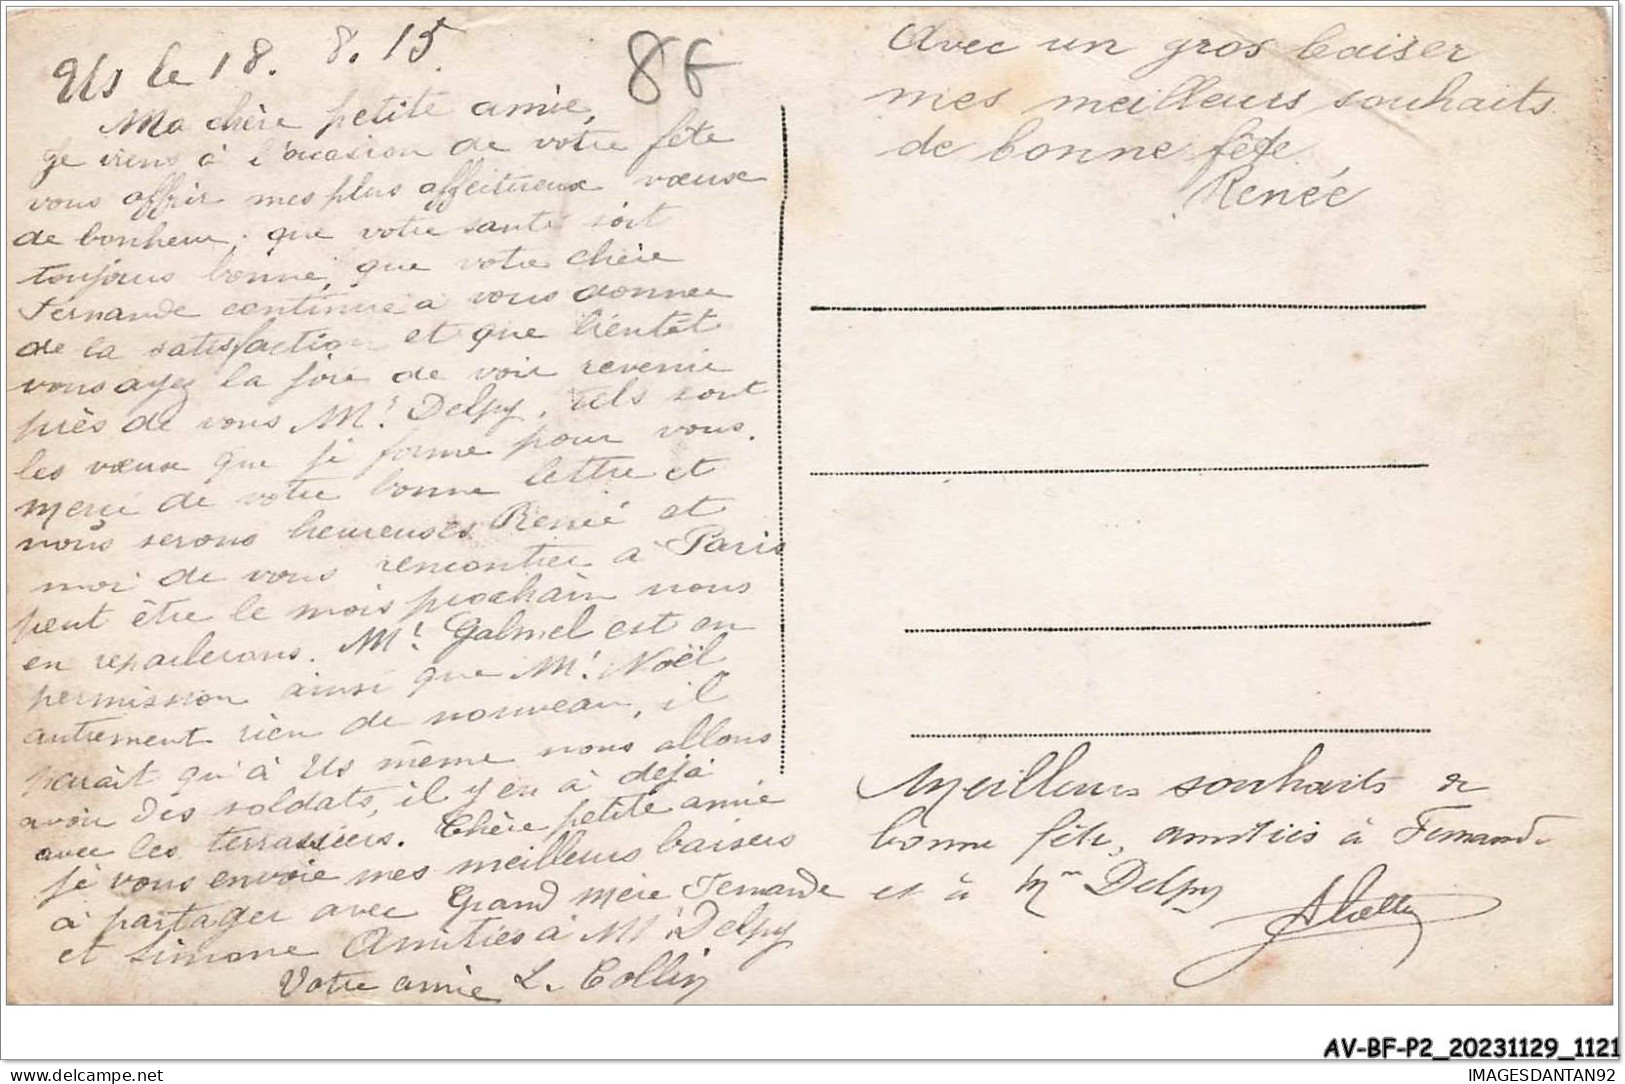 Us le 18. 8. 15
8F
Ma chère petite amie,
Je viens à l'occasion de votre fête
vous offrir mes plus affectueux vœux
de bonheur, que votre santé soit
toujours bonne, que votre chère
Fernande continue à vous donner
de la satisfaction et que bientôt
vous ayez la joie de voir revenir
près de vous Mr. Delpy, tels sont
les vœux que je forme pour vous.
Merci de votre bonne lettre et
nous serons heureuses Renée et
moi de vous rencontrer à Paris
peut être le mois prochain nous
en reparlerons. Mr. Galmel est en
permission ainsi que Mr. Noël
autrement rien de nouveau, il
parait qu'à Us même nous allons
avoir des soldats, il y en a déjà
avec les terrassiers. Chère petite amie
je vous envoie mes meilleurs baisers
à partager avec Grand mère Fernande
et Simone Amitiés à Mr Delpy
Votre amie L. Collin
Avec un gros baiser
mes meilleurs souhaits
de bonne fête.
Renée
Meilleurs souhaits de
bonne fête, amitiés à Fernande
et à Mme Delpy
AV-BF-P2_20231129_1121
IMAGESDANTAN92